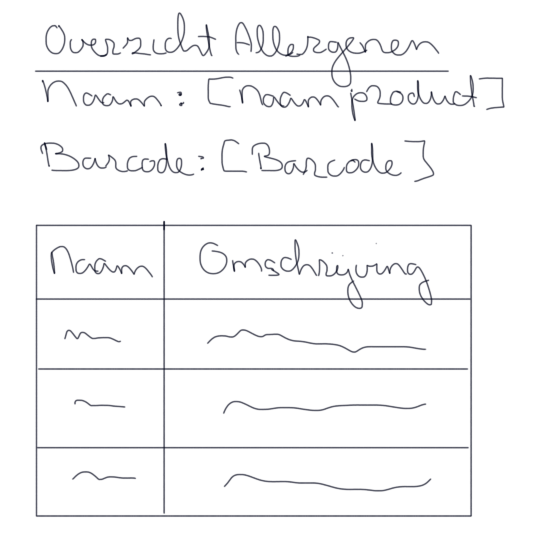 Overzicht Allergenen
Naam: [Naam product]
Barcode: [Barcode]
Naam Omschrijving